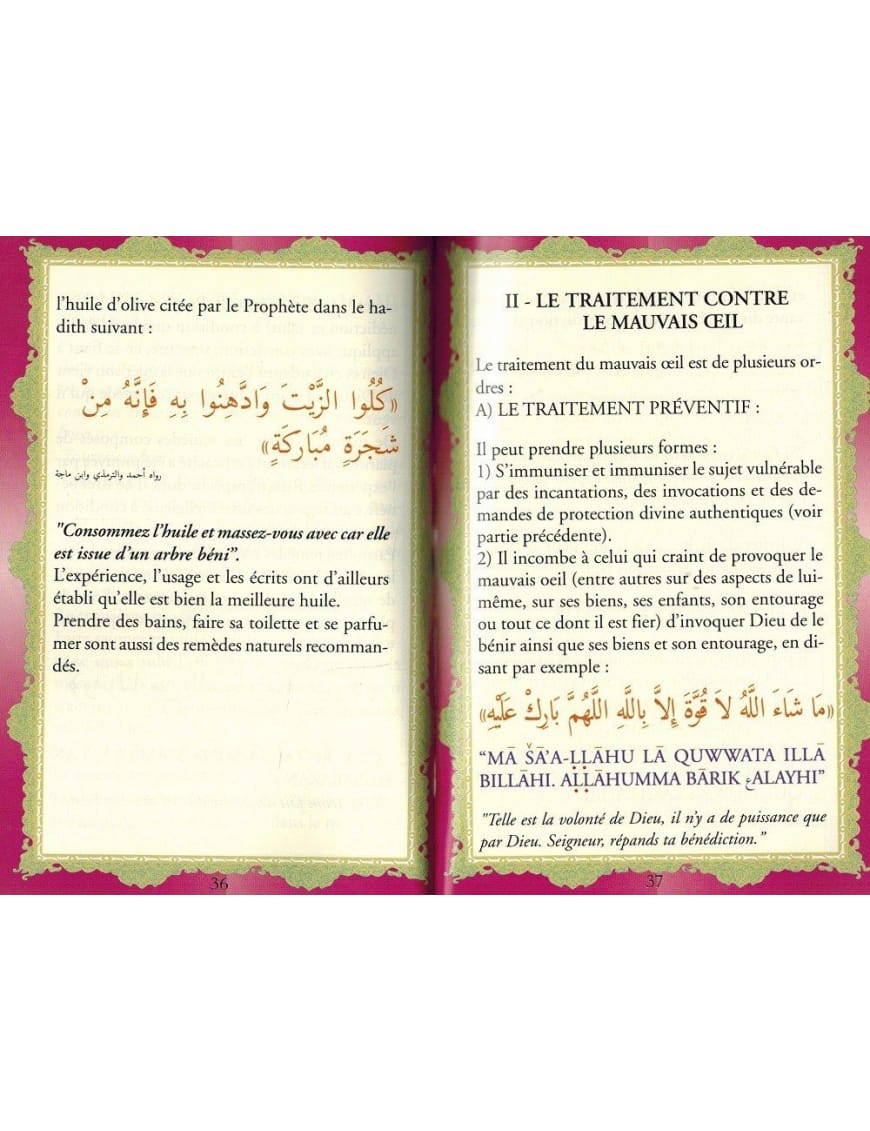 l’huile d’olive citée par le Prophète dans le ha-
dith suivant :
«كُلُوا الزَّيْتَ وَادَّهِنُوا بِهِ فَإِنَّهُ مِنْ
شَجَرَةٍ مُبَارَكَةٍ»
رواه أحمد والترمذي وابن ماجة
"Consommez l’huile et massez-vous avec car elle
est issue d’un arbre béni”.
L’expérience, l’usage et les écrits ont d’ailleurs
établi qu’elle est bien la meilleure huile.
Prendre des bains, faire sa toilette et se parfu-
mer sont aussi des remèdes naturels recomman-
dés.
36
II - LE TRAITEMENT CONTRE
LE MAUVAIS ŒIL
Le traitement du mauvais œil est de plusieurs or-
dres :
A) LE TRAITEMENT PRÉVENTIF :
Il peut prendre plusieurs formes :
1) S’immuniser et immuniser le sujet vulnérable
par des incantations, des invocations et des de-
mandes de protection divine authentiques (voir
partie précédente).
2) Il incombe à celui qui craint de provoquer le
mauvais oeil (entre autres sur des aspects de lui-
même, sur ses biens, ses enfants, son entourage
ou tout ce dont il est fier) d’invoquer Dieu de le
bénir ainsi que ses biens et son entourage, en di-
sant par exemple :
«مَا شَاءَ اللَّهُ لاَ قُوَّةَ إِلاَّ بِاللَّهِ اللَّهُمَّ بَارِكْ عَلَيْهِ»
“MĀ ŠĀ’A-ḶḶĀHU LĀ QUWWATA ILLĀ
BILLĀHI. AḶḶĀHUMMA BĀRIK ‘ALAYHI”
"Telle est la volonté de Dieu, il n’y a de puissance que
par Dieu. Seigneur, répands ta bénédiction.”
37